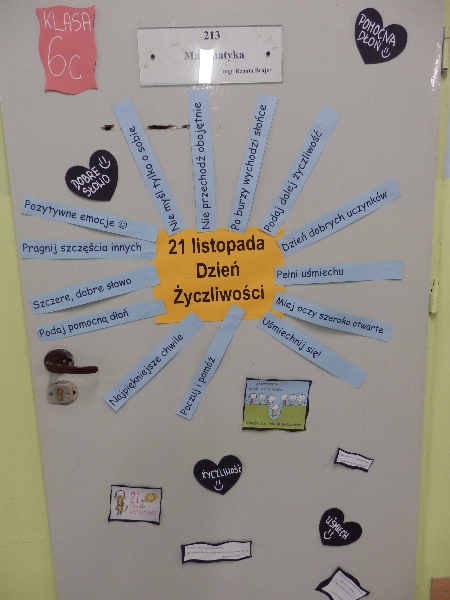 KLASA
6C
213
Matematyka
mgr Renata Brajer
POMOCNA
DŁOŃ
DOBRE
SŁOWO
Nie myśl tylko o sobie
Nie przechodź obojętnie
Po burzy wychodzi słońce
Podaj dalej życzliwość
Dzień dobrych uczynków
Pełni uśmiechu
Miej oczy szeroko otwarte
Uśmiechnij się!
Poczuj i pomóż
Najpiękniejsze chwile
Podaj pomocną dłoń
Szczere, dobre słowo
Pragnij szczęścia innych
Pozytywne emocje ☺
21 listopada
Dzień
Życzliwości
ŻYCZLIWOŚĆ
21
UŚMIECH